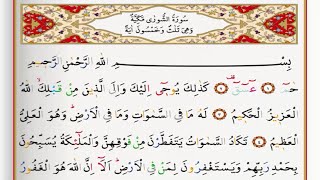 سُوْرَةُ الشُّوْرٰى مَكِّيَّةٌ
وَهِيَ ثَلٰثٌ وَّخَمْسُوْنَ اٰيَةً
بِسْمِ اللّٰهِ الرَّحْمٰنِ الرَّحِيْمِ
حٰمٓ ۞ عٓسٓقٓ ۞ كَذٰلِكَ يُوْحِيْٓ اِلَيْكَ وَاِلَى الَّذِيْنَ مِنْ قَبْلِكَ اللّٰهُ
الْعَزِيْزُ الْحَكِيْمُ ۞ لَهٗ مَا فِي السَّمٰوٰتِ وَمَا فِي الْاَرْضِ وَهُوَ الْعَلِيُّ
الْعَظِيْمُ ۞ تَكَادُ السَّمٰوٰتُ يَتَفَطَّرْنَ مِنْ فَوْقِهِنَّ وَالْمَلٰٓئِكَةُ يُسَبِّحُوْنَ
بِحَمْدِ رَبِّهِمْ وَيَسْتَغْفِرُوْنَ لِمَنْ فِي الْاَرْضِ اَلَآ اِنَّ اللّٰهَ هُوَ الْغَفُوْرُ